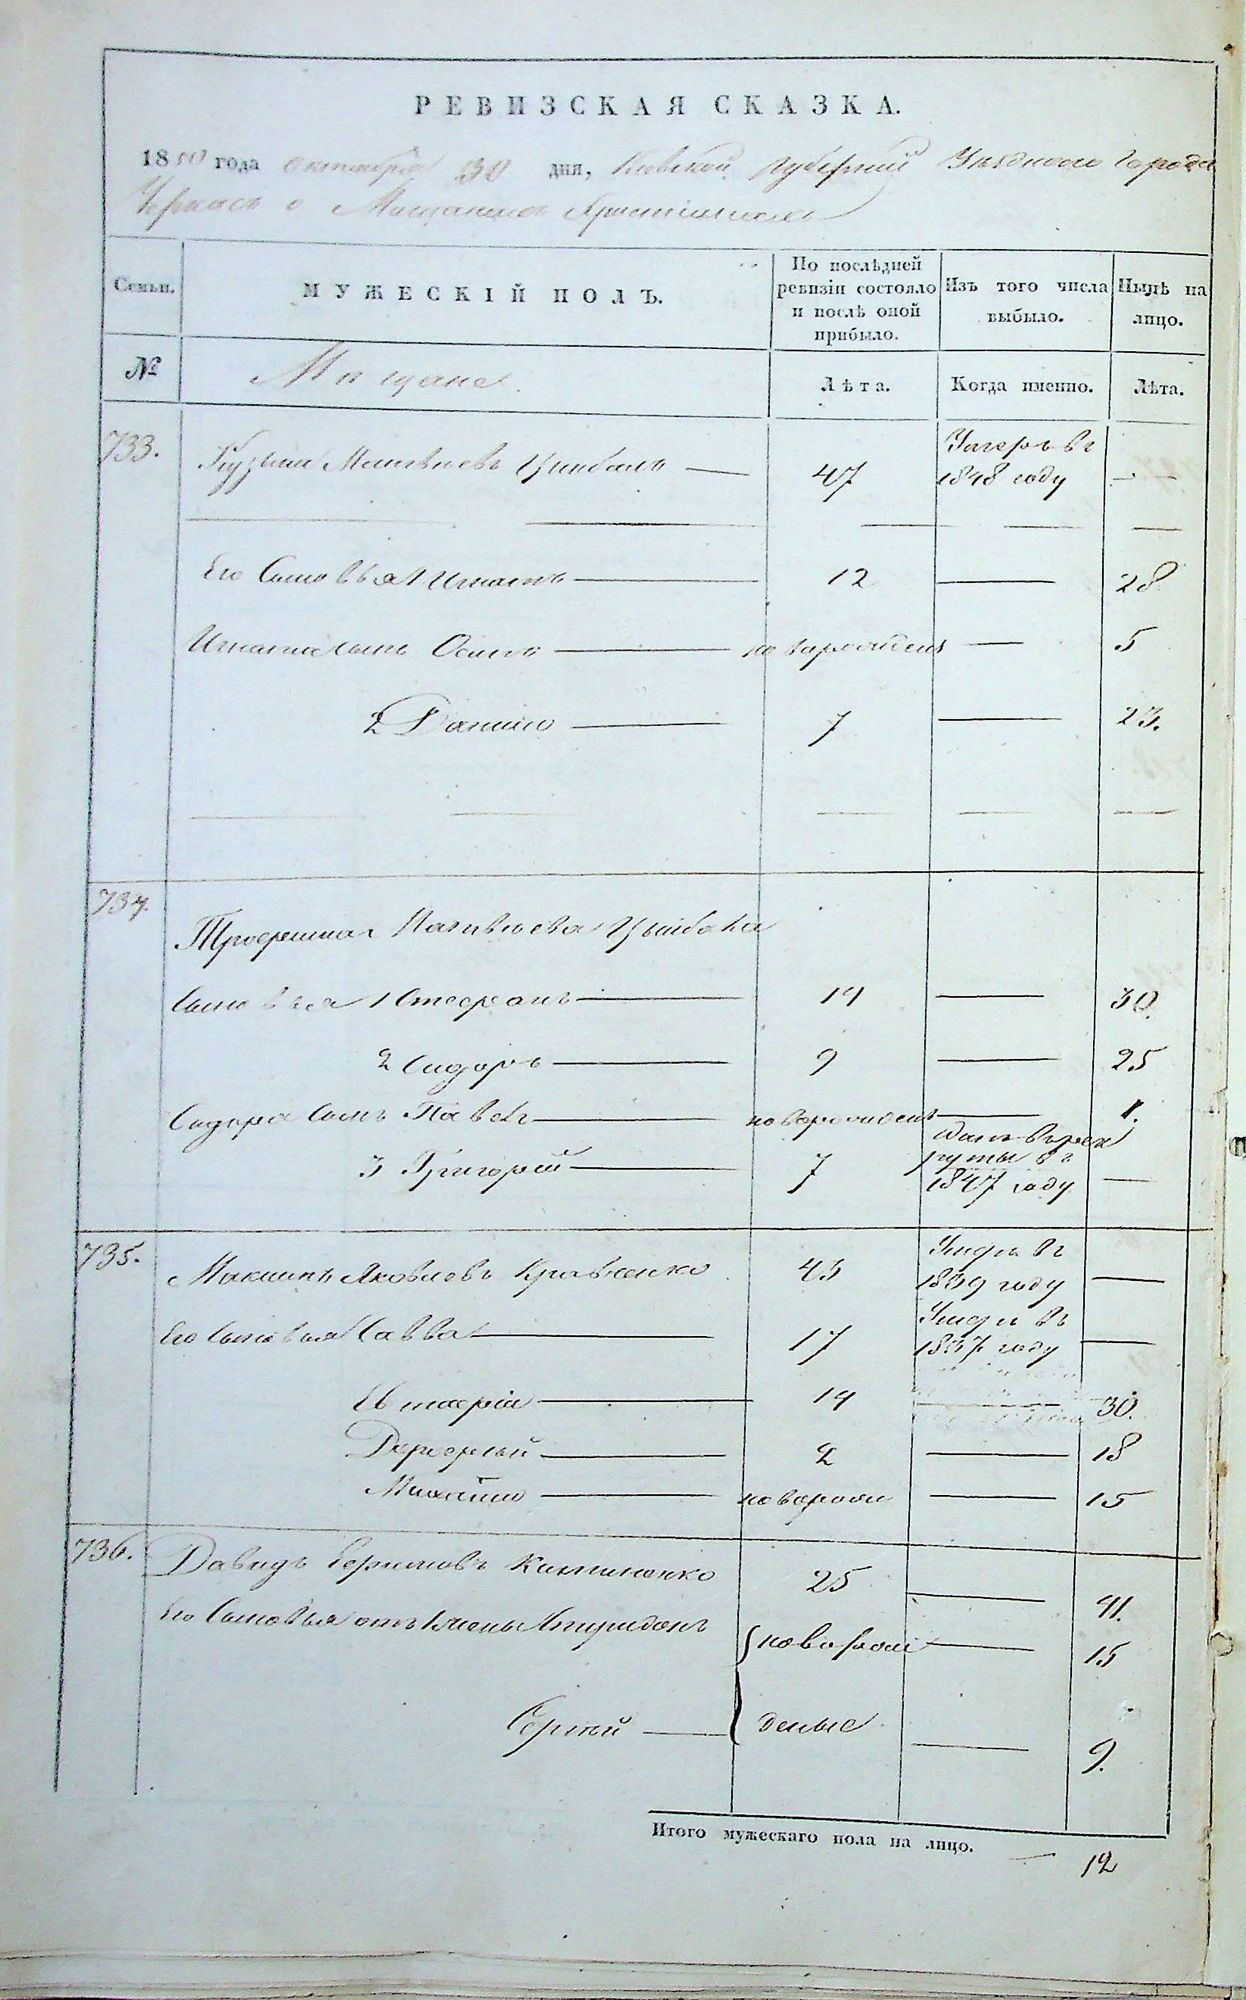 РЕВИЗСКАЯ СКАЗКА.
1850 года октября 30 дня, Киевской губерніи Уѣзднаго города
Черкасъ о Мещанахъ Христіанахъ
Семьи.
МУЖЕСКІЙ ПОЛЪ.
По послѣдней ревизіи состояло и послѣ оной прибыло.
Изъ того числа выбыло.
Нынѣ на лицо.
№
Мещане
Лѣта.
Когда именно.
Лѣта.
733. Кузьма Матвѣевъ Цыбаль 47 Умеръ въ 1848 году —
Его Сыновья 1 Игнатъ 12 — 28
Игната сынъ Осипъ новорожденъ — 5
2 Данило 7 — 23.
734. Трофима Матвѣева Цыбаля
Сыновья 1 Стефанъ 14 — 30.
2 Сидоръ 9 — 25
Сидора Сынъ Павелъ новорожденъ — 1.
3 Григорій 7 данъ въ рекруты въ 1847 году —
735. Максимъ Яковлевъ Кравченко 43 Умеръ въ 1839 году —
Его Сыновья Савва 17 Умеръ въ 1837 году —
14 — 30.
2 — 18
Михайло новорож — 15
736. Давидъ 25 — 41.
Его Сыновья отъ 1 жены новорож — 15
Сергѣй деные — 9.
Итого мужескаго пола на лицо. — 12